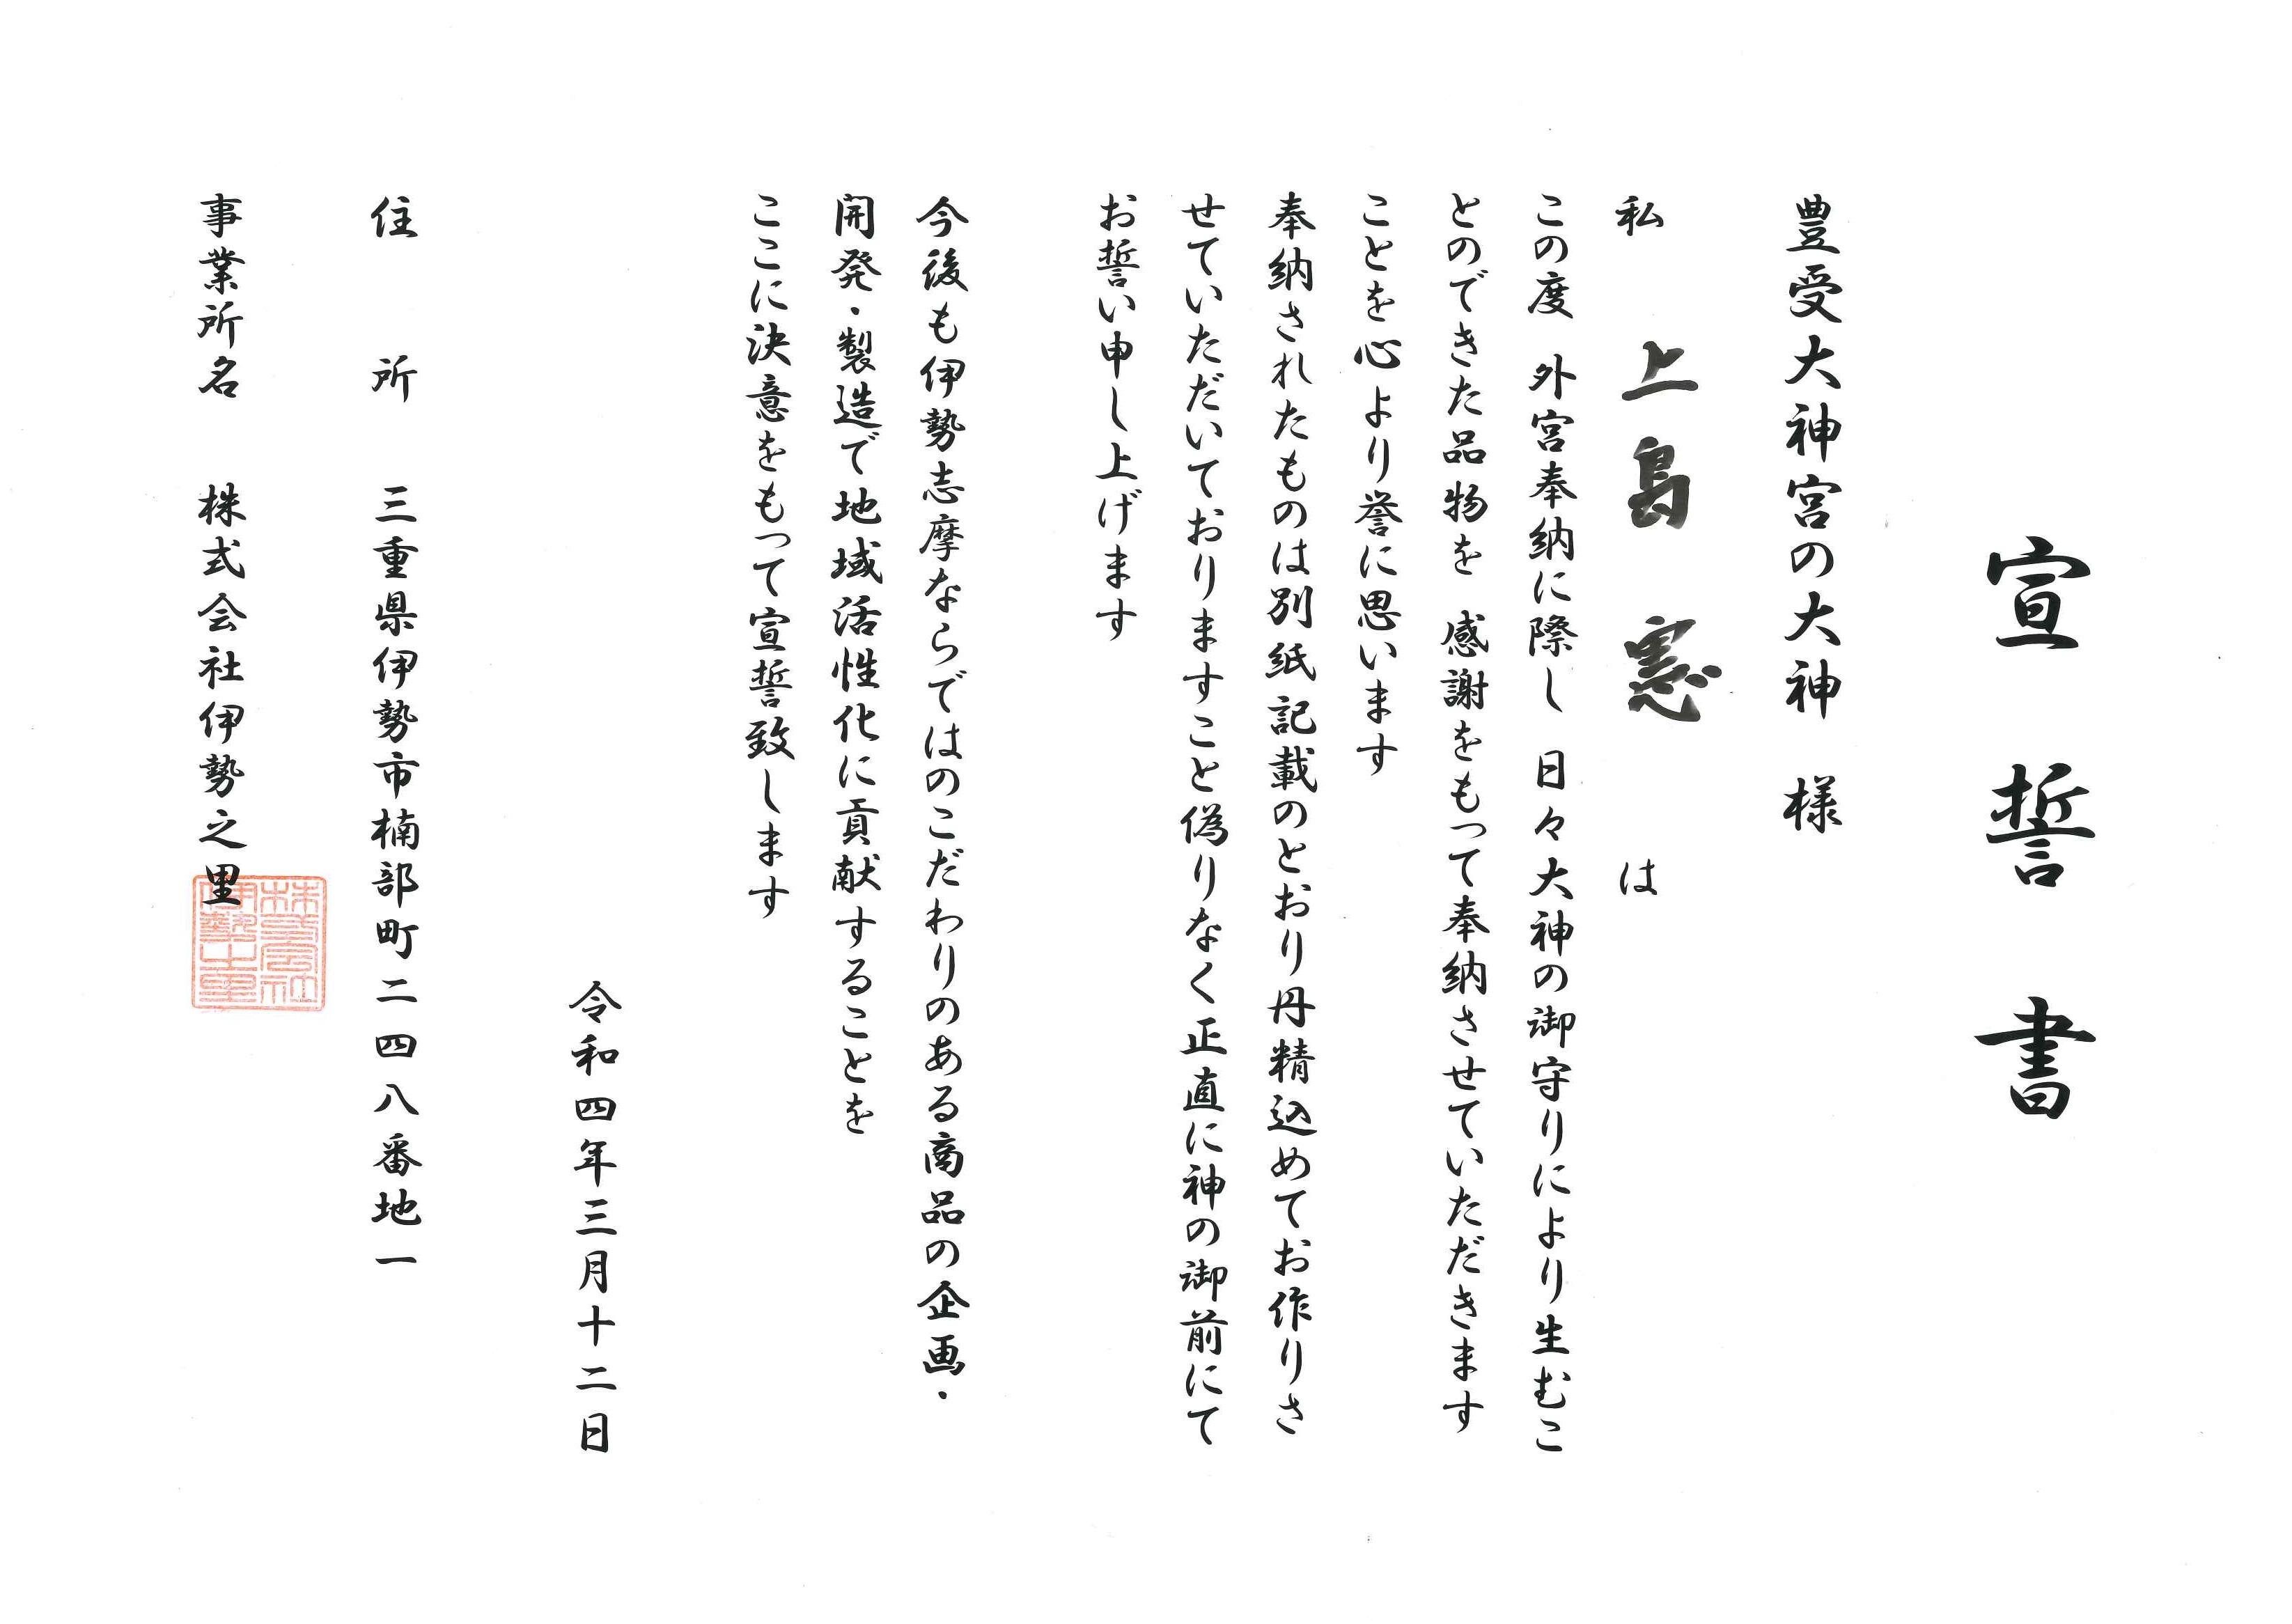 宣誓書
豊受大神宮の大神 様
私 上島 憲 は
この度 外宮奉納に際し 日々大神の御守りにより生むこ
とのできた品物を 感謝をもって奉納させていただきます
ことを心より誉に思います
奉納されたものは別紙記載のとおり丹精込めてお作りさ
せていただいておりますこと偽りなく正直に神の御前にて
お誓い申し上げます
今後も伊勢志摩ならではのこだわりのある商品の企画・
開発・製造で地域活性化に貢献することを
ここに決意をもって宣誓致します
令和四年三月十二日
住 所 三重県伊勢市楠部町二四八番地一
事業所名 株式会社伊勢之里
株式会社
伊勢之里